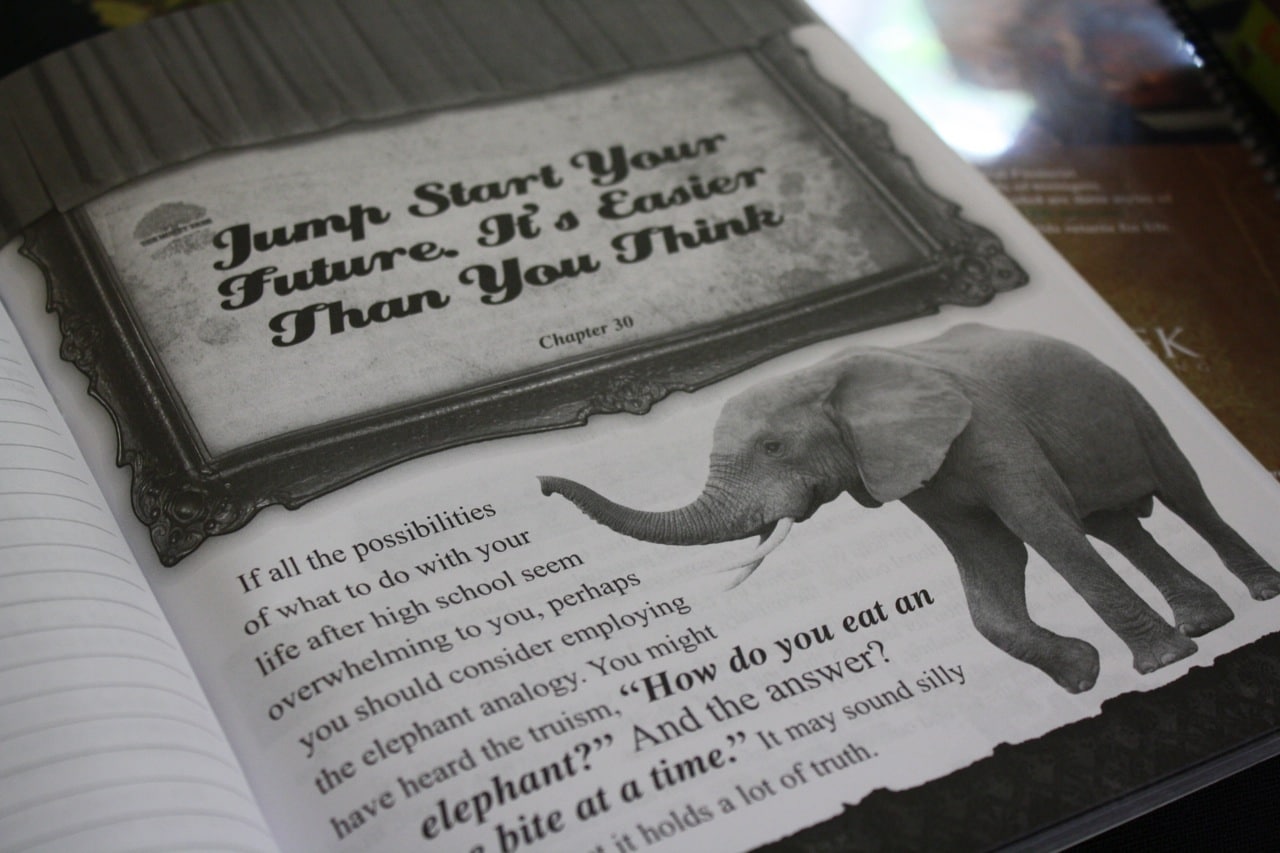 Jump Start Your
Future. It's Easier
Than You Think
Chapter 30
If all the possibilities
of what to do with your
life after high school seem
overwhelming to you, perhaps
you should consider employing
the elephant analogy. You might
have heard the truism, “How do you eat an
elephant?” And the answer?
bite at a time.” It may sound silly
it holds a lot of truth.